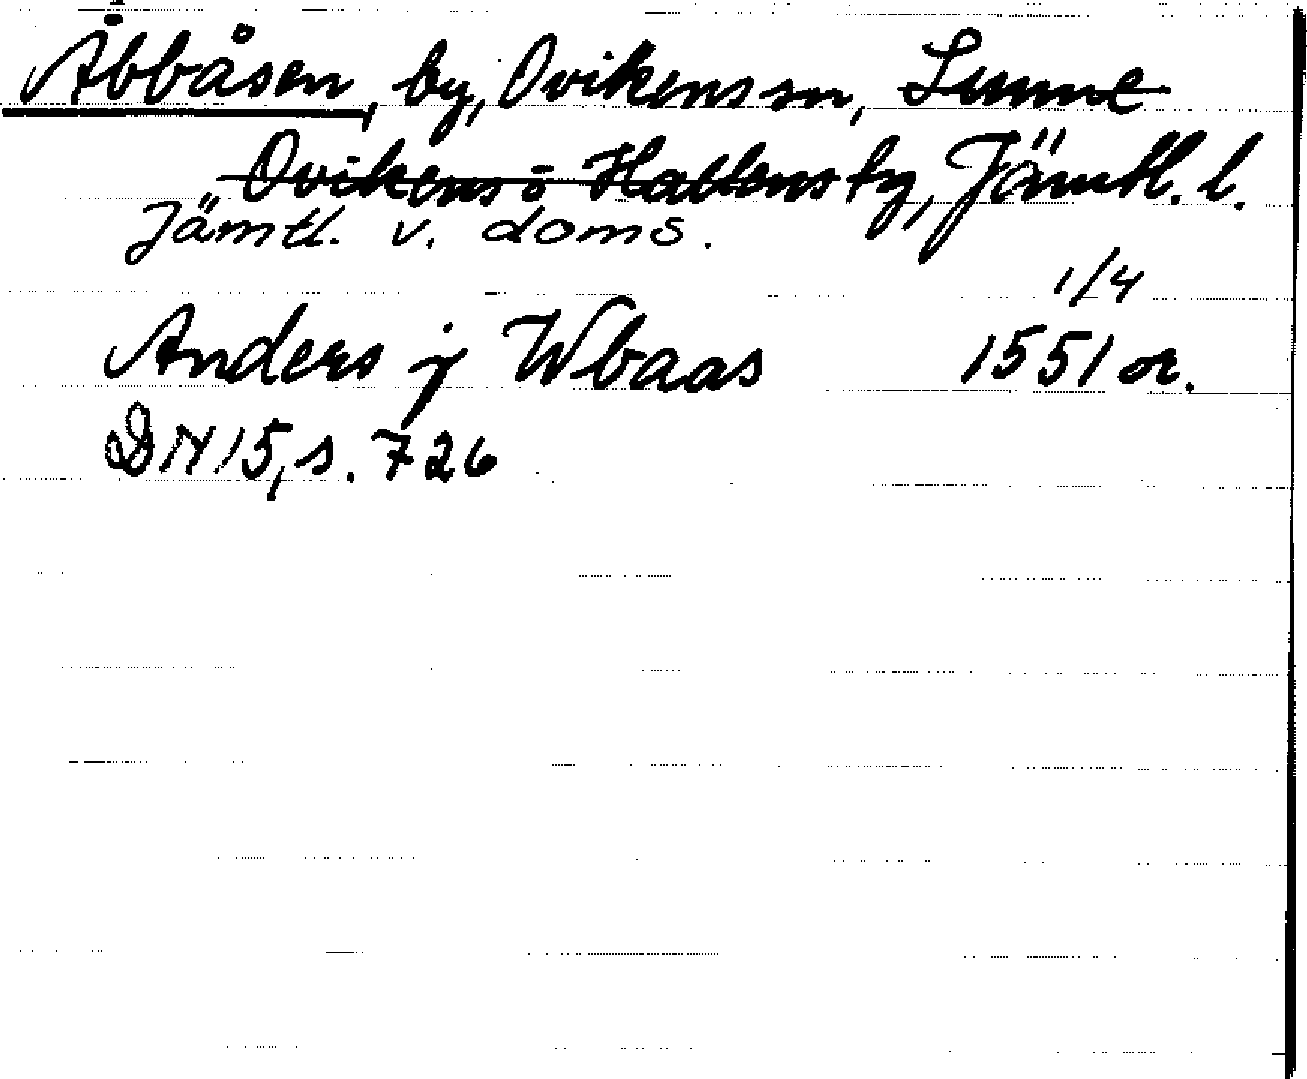 Åbbåsen, by, Ovikens sn, Sunne
Ovikens o Hallens tg, Jämtl. l.
Jämtl. v. doms.
1/4
Anders j Wbaas 1551 or.
DN 15, s. 726